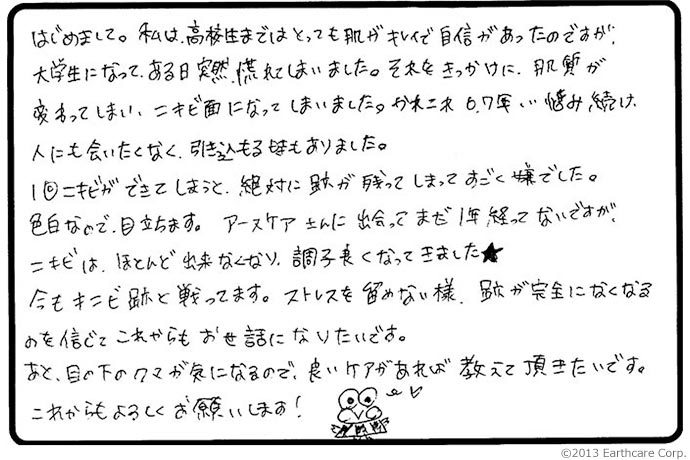 はじめまして。私は、高校生まではとっても肌がキレイで自信があったのですが、
大学生になって、ある日突然、荒れてしまいました。それをきっかけに、肌質が
変わってしまい、ニキビ面になってしまいました。かれこれ6.7年い悩み続け、
人にも会いたくなく、引き込もる時もありました。
1回ニキビができてしまうと、絶対に跡が残ってしまってすごく嫌でした。
色白なので、目立ちます。アースケアさんに出会ってまだ1年経ってないですが、
ニキビは、ほとんど出来なくなり、調子良くなってきました★
今もキニビ跡と戦ってます。ストレスを留めない様、跡が完全になくなる
のを信じてこれからもお世話になりたいです。
あと、目の下のクマが気になるので、良いケアがあれば教えて頂きたいです。
これからもよろしくお願いします!
©2013 Earthcare Corp.